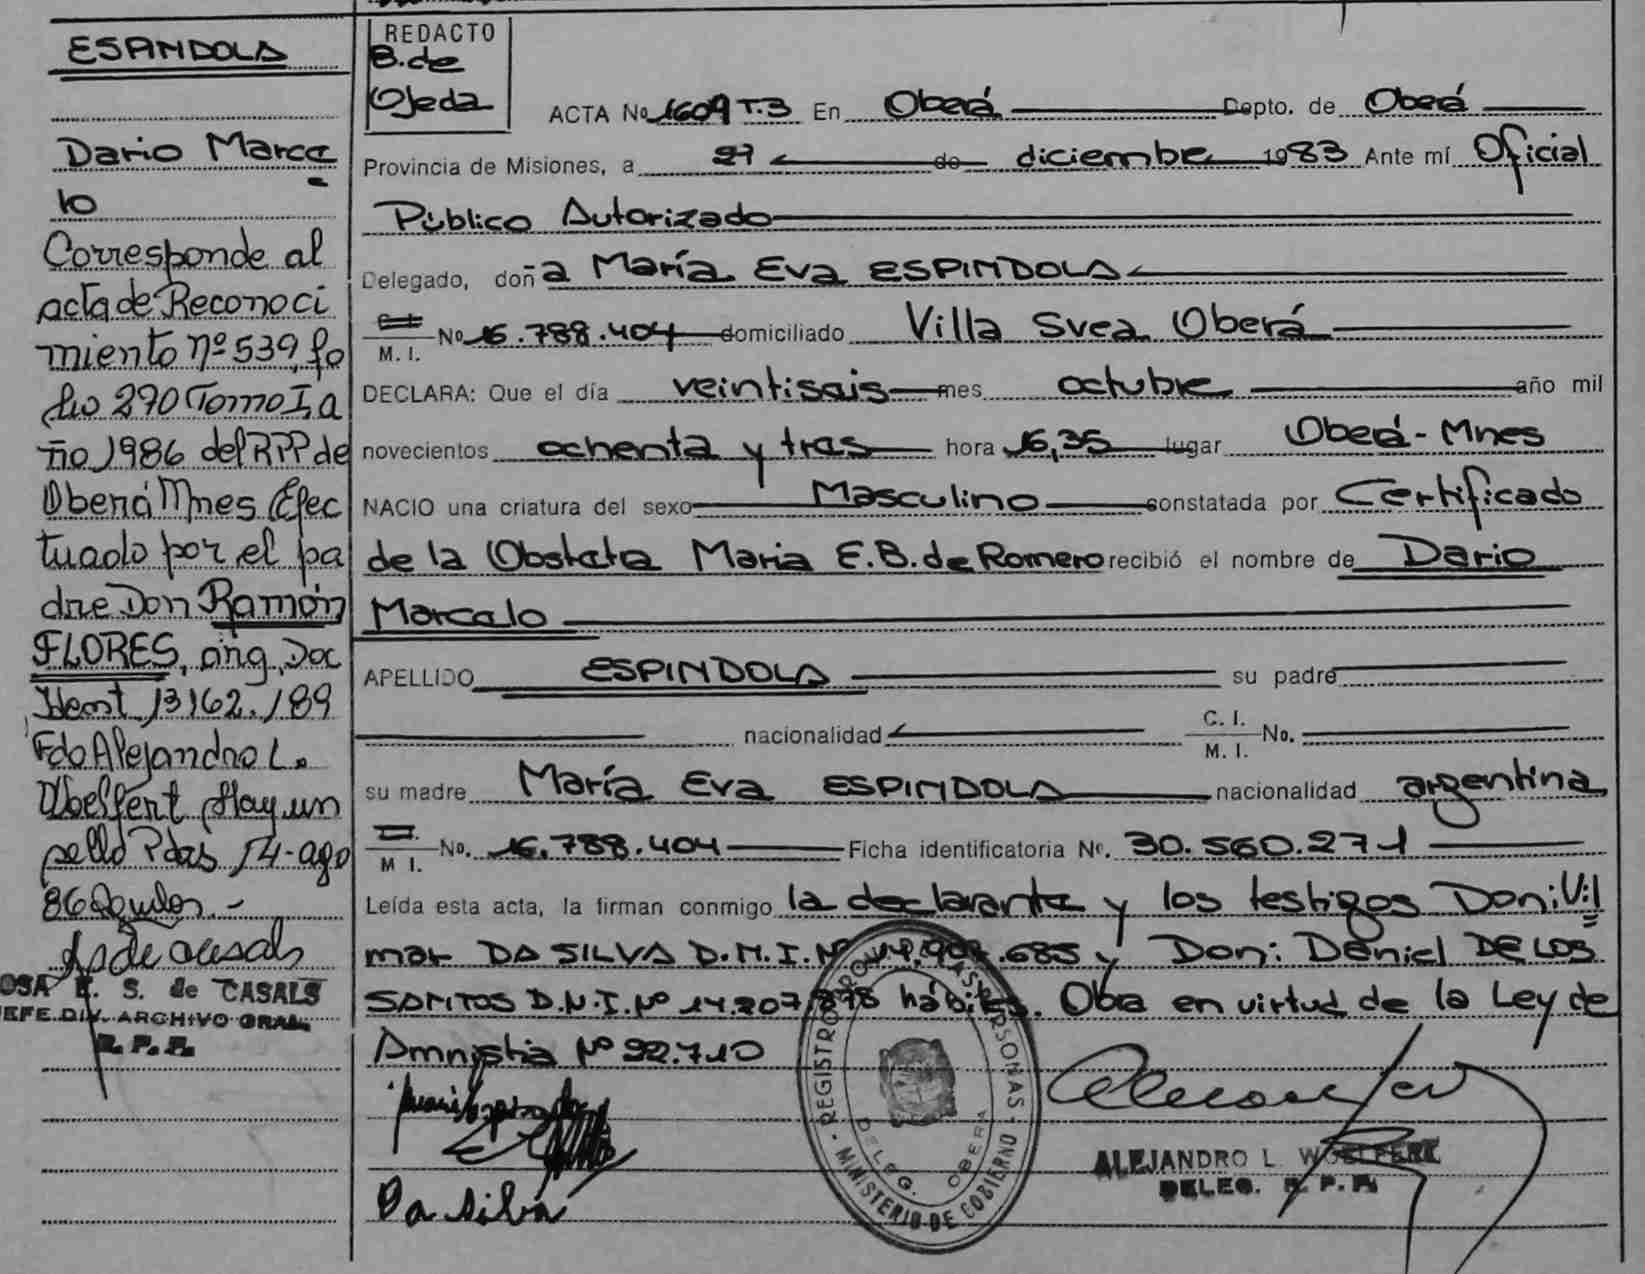 ESPINDOLA
Dario Marce
lo
Corresponde al
acta de Reconoci
miento nº 539, fo
lio 290 Tomo I, a
ño 1986 del RPP de
Oberá Mnes Efec
tuado por el pa
dre Don Ramón
FLORES, arig. Doc
Ident 13162.189
Fdo Alejandro L.
Hay un
sello Pdas 14-ago
86
OSA E. S. de CASALS
EFE DIV. ARCHIVO GRAL.
R. P. P.
REDACTO
B. de
Ojeda
ACTA No 1609 T.3 En Oberá Depto. de Oberá
Provincia de Misiones, a 27 de diciembre 1983 Ante mí Oficial
Público Autorizado
Delegado, doña María Eva ESPINDOLA
M. I. No 16.788.404 domiciliado Villa Svea Oberá
DECLARA: Que el día veintiseis mes octubre año mil
novecientos ochenta y tres hora 16,35 lugar Oberá - Mnes
NACIO una criatura del sexo Masculino constatada por Certificado
de la Obstetra Maria E.B. de Romero recibió el nombre de Dario
Marcelo
APELLIDO ESPINDOLA su padre
nacionalidad C. I. M. I. No.
su madre María Eva ESPINDOLA nacionalidad argentina
M I. No. 16.788.404 Ficha identificatoria Nº. 30.560.271
Leída esta acta, la firman conmigo la declarante y los testigos Don: Vil
mar DA SILVA D.N.I. Nº .685 y Don: Daniel DE LOS
SANTOS D.N.I. Nº 14.207.878 hábiles. Obra en virtud de la Ley de
Amnistia Nº 22.710
Da Silva
REGISTRO PROV. DE LAS PERSONAS
MINISTERIO DE GOBIERNO
DELEG. OBERA
ALEJANDRO L.
DELEG. R. P. P.